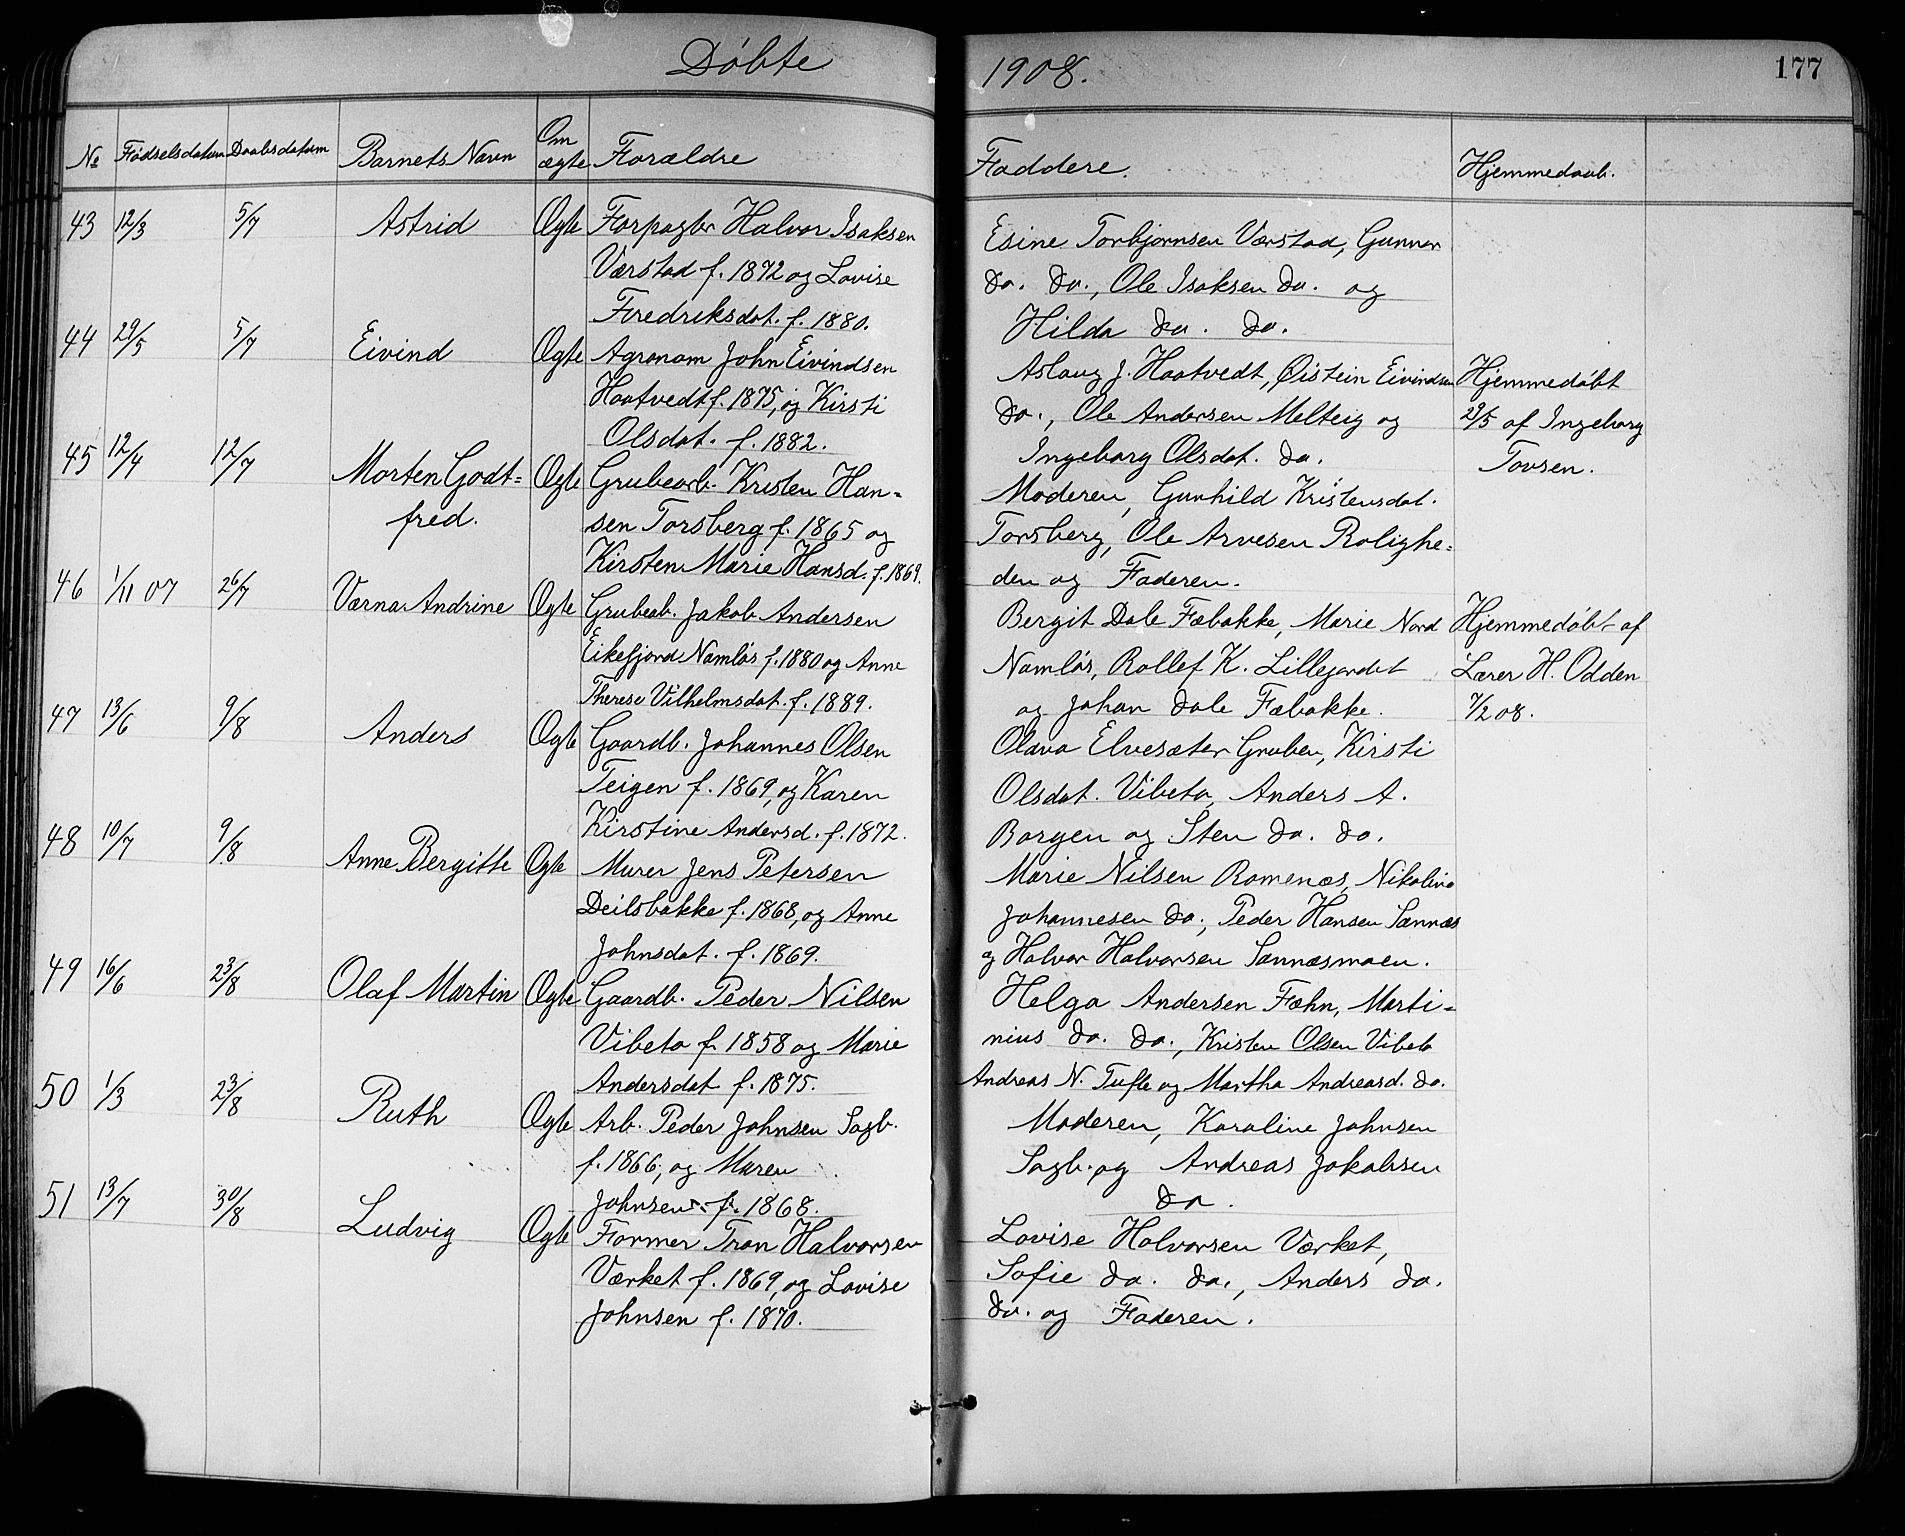 Döbte 1908. 177
№ Födselsdatum Daabsdatum Barnets Navn Om ægte Forældre Faddere. Hjemmedaab.
43 12/3 5/7 Astrid Ægte Forpagter Halvor Isaksen
Værstad f. 1872 og Lovise
Fredriksdat. f. 1880.
Esine Torbjørnsen Værstad, Gunnar
do. do., Ole Isaksen do. og
Hilda do. do.
44 29/5 5/7 Eivind Ægte Agronom John Eivindsen
Haatvedt f. 1875, og Kirsti
Olsdat. f. 1882.
Aslaug J. Haatvedt, Øistein Eivindsen
do., Ole Andersen Melteig og
Ingeborg Olsdat. do.
Hjemmedöbt
29/5 af Ingeborg
Tovsen.
45 12/4 12/7 Morten Godt=
fred.
Ægte Grubearb. Kristen Han=
sen Torsberg f. 1865 og
Kirsten Marie Hansd. f. 1869.
Moderen, Gunhild Kristensdat.
Torsberg, Ole Arvesen Rolighe=
den og Faderen.
46 1/11 07 26/7 Værna Andrine Ægte Grubeab. Jakob Andersen
Eikefjord Namløs f. 1880 og Anne
Therese Vilhelmsdat. f. 1889.
Bergit Dale Fæbakke, Marie Nord
Namløs, Rollef K. Lillejordet
og Johan Dale Fæbakke.
Hjemmedöbt af
Lærer H. Odden
7/2 08.
47 13/6 9/8 Anders Ægte Gaardb. Johannes Olsen
Teigen f. 1869, og Karen
Kirstine Andersd. f. 1872.
Olava Elvesæter Gruben, Kirsti
Olsdat. Vibeto, Anders A.
Borgen og Sten do. do.
48 10/7 9/8 Anne Bergitte Ægte Murer Jens Petersen
Deilsbakke f. 1868, og Anne
Johnsdat. f. 1869.
Marie Nilsen Romenæs, Nikoline
Johannesen do., Peder Hansen Sannæs
og Halvor Halvorsen Sannæsmoen.
49 16/6 23/8 Olaf Martin Ægte Gaardb. Peder Nilsen
Vibeto f. 1858 og Marie
Andersdat f. 1875.
Helga Andersen Fæhn, Marti=
nius do. do., Kristen Olsen Vibeto
Andreas N. Tufte og Martha Andreasd. do.
50 1/3 23/8 Ruth Ægte Arb. Peder Johnsen Sagb.
f. 1866, og Maren
Johnsen f. 1868.
Moderen, Karoline Johnsen
Sagb. og Andreas Jakobsen
do.
51 13/7 30/8 Ludvig Ægte Former Tron Halvorsen
Værket f. 1869, og Lovise
Johnsen f. 1870.
Lovise Halvorsen Værket,
Sofie do. do., Anders do.
do. og Faderen.